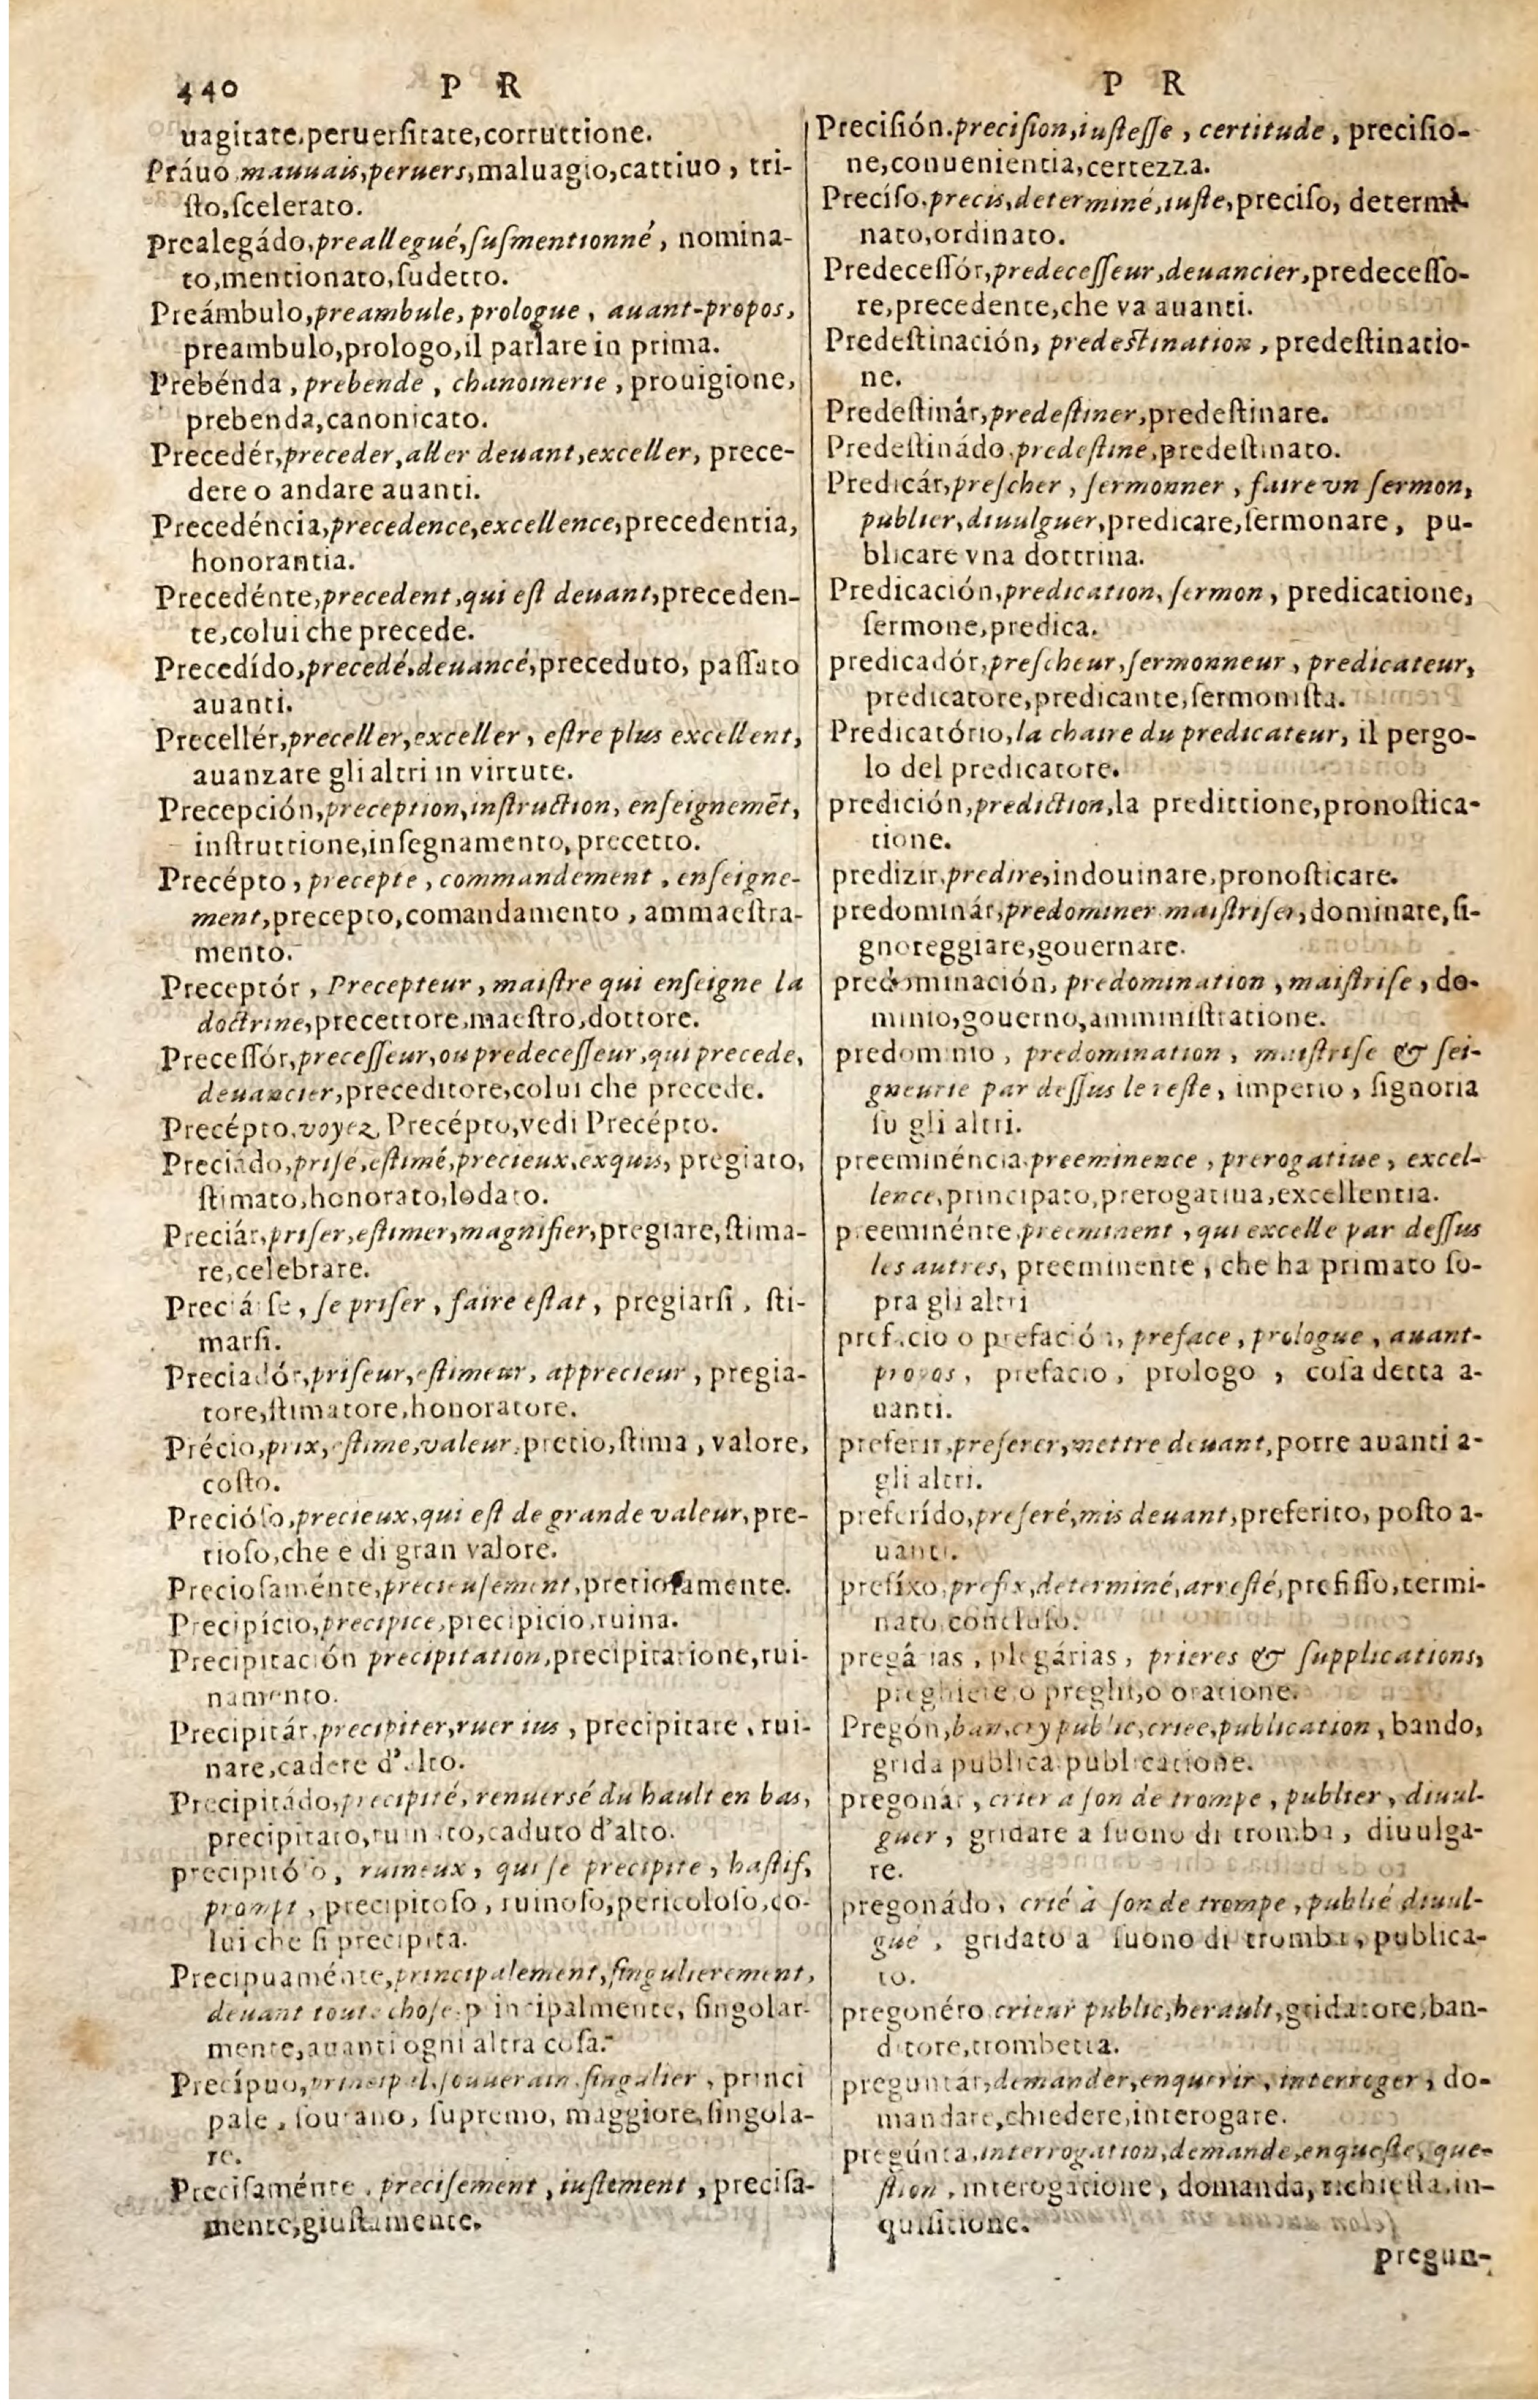 440 P R
uagitate,peruersitate,corruttione.
Práuo,mauuais,peruers,maluagio,cattiuo, tri-
sto,scelerato.
Prealegádo,preallegué,susmentionné, nomina-
to,mentionato,sudetto.
Preámbulo,preambule,prologue, auant-propos,
preambulo,prologo,il parlare in prima.
Prebénda, prebende, chanoinerie, prouigione,
prebenda,canonicato.
Precedér,preceder,aller deuant,exceller, prece-
dere o andare auanti.
Precedéncia,precedence,excellence,precedentia,
honorantia.
Precedénte,precedent,qui est deuant,preceden-
te,colui che precede.
Precedído,precedé,deuancé,preceduto, passato
auanti.
Precellér,preceller,exceller, estre plus excellent,
auanzare gli altri in virtute.
Precepción,preception,instruction, enseignemēt,
instruttione,insegnamento,precetto.
Precépto, precepte, commandement, enseigne-
ment,precepto,comandamento, ammaestra-
mento.
Preceptór, Precepteur, maistre qui enseigne la
doctrine,precettore,maestro,dottore.
Precessór,precesseur,ou predecesseur,qui precede,
deuancier,preceditore,colui che precede.
Precépto,voyez Precépto,vedi Precépto.
Preciádo,prisé,estimé,precieux,exquis, pregiato,
stimato,honorato,lodato.
Preciár,priser,estimer,magnifier,pregiare,stima-
re,celebrare.
Preciáse, se priser, faire estat, pregiarsi, sti-
marsi.
Preciadór,priseur,estimeur, apprecieur, pregia-
tore,stimatore,honoratore.
Précio,prix,estime,valeur,pretio,stima, valore,
costo.
Precióso,precieux,qui est de grande valeur,pre-
tioso,che e di gran valore.
Preciosaménte,precieusement,pretiosamente.
Precipício,precipice,precipicio,ruina.
Precipitación precipitation,precipitatione,rui-
namento.
Precipitár,precipiter,ruer ius, precipitare, rui-
nare,cadere d'alto.
Precipitádo,precipité, renuersé du hault en bas,
precipitato,ruinato,caduto d'alto.
precipitóso, ruineux, qui se precipite, hastif,
prompt, precipitoso, ruinoso,pericoloso,co-
lui che si precipita.
Precipuaménte,principalement,singulierement,
deuant toute chose,principalmente, singolar-
mente,auanti ogni altra cosa.
Precípuo,principal,souuerain,singulier, princi
pale, sourano, supremo, maggiore,singola-
re.
Precisaménte, precisement, iustement, precisa-
mente,giustamente.
P R
Precisión.precision,iustesse, certitude, precisio-
ne,conuenientia,certezza.
Preciso.precis,determiné,iuste,preciso, determi-
nato,ordinato.
Predecessór,predecesseur,deuancier,predecesso-
re,precedente,che va auanti.
Predestinación, predestination, predestinatio-
ne.
Predestinár,predestiner,predestinare.
Predestinádo,predestine,predestinato.
Predicár,prescher, sermonner, faire vn sermon,
publier,diuulguer,predicare,sermonare, pu-
blicare vna dottrina.
Predicación,predication,sermon, predicatione,
sermone,predica.
predicadór,prescheur,sermonneur, predicateur,
predicatore,predicante,sermonista.
Predicatório,la chaire du predicateur, il pergo-
lo del predicatore.
predición,prediction,la predittione,pronostica-
tione.
predizir,predire,indouinare,pronosticare.
predominár,predominer maistriser,dominare,si-
gnoreggiare,gouernare.
predominación, predomination, maistrise, do-
minio,gouerno,amministratione.
predominio, predomination, maistrise & sei-
gneurie par dessus le reste, imperio, signoria
su gli altri.
preeminéncia,preeminence, prerogatiue, excel-
lence,principato,prerogatiua,excellentia.
preeminénte,preeminent, qui excelle par dessus
les autres, preeminente, che ha primato so-
pra gli altri
prefacio o prefación, preface, prologue, auant-
propos, prefacio, prologo, cosa detta a-
uanti.
preferir,preferer,mettre deuant,porre auanti a-
gli altri.
preferído,preferé,mis deuant,preferito, posto a-
uanti.
prefíxo,prefix,determiné,arresté,prefisso,termi-
nato,concluso.
pregárias, plegárias, prieres & supplications,
preghiere,o preghi,o oratione.
Pregón,ban,cry public,criee,publication, bando,
grida publica,publicatione.
pregonár, crier a son de trompe, publier, diuul-
guer, gridare a suono di tromba, diuulga-
re.
pregonádo, crié à son de trompe, publié,diuul-
gué, gridato a suono di tromba, publica-
to.
pregonéro,crieur public,herault,gridatore,ban-
ditore,trombetta.
preguntár,demander,enquerir, interroger, do-
mandare,chiedere,interogare.
pregúnta,interrogation,demande,enqueste, que-
stion, interogatione, domanda,richiesta,in-
quisitione.
pregun-